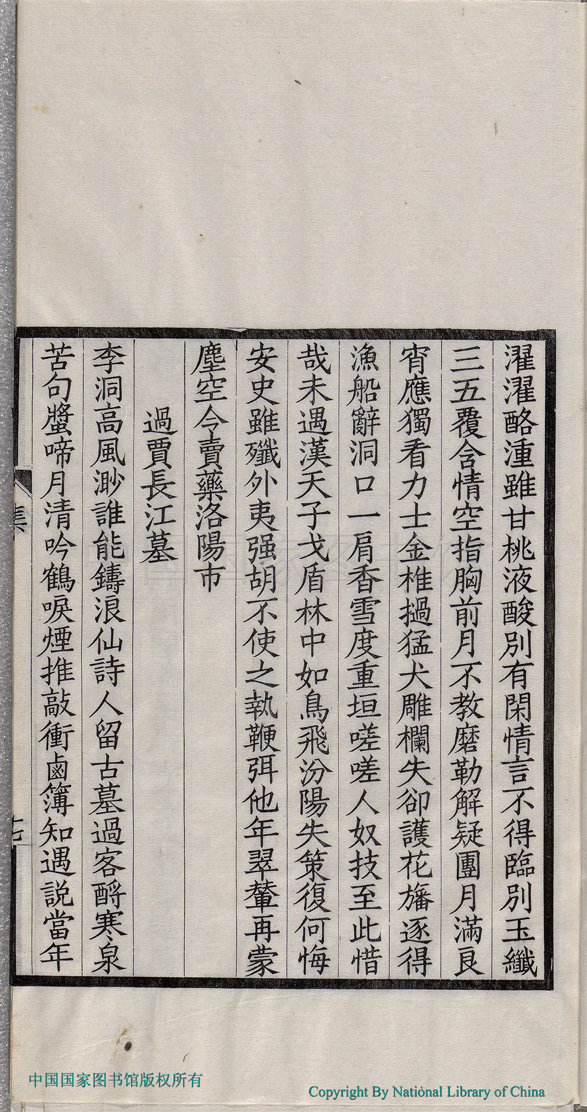 濯濯酪湩雖甘桃液酸別有閑情言不得臨別玉纖
三五覆含情空指胸前月不教磨勒解疑團月滿良
宵應獨看力士金椎撾猛犬雕欄失卻護花旛逐得
漁船辭洞口一肩香雪度重垣嗟嗟人奴技至此惜
哉未遇漢天子戈盾林中如鳥飛汾陽失策復何悔
安史雖殲外夷强胡不使之執鞭弭他年翠輦再蒙
塵空令賣藥洛陽市
過賈長江墓
李洞高風渺誰能鑄浪仙詩人留古墓過客酹寒泉
苦句螿啼月清吟鶴唳煙推敲衝鹵簿知遇説當年
集
七
中国国家图书馆版权所有
Copyright By National Library of China